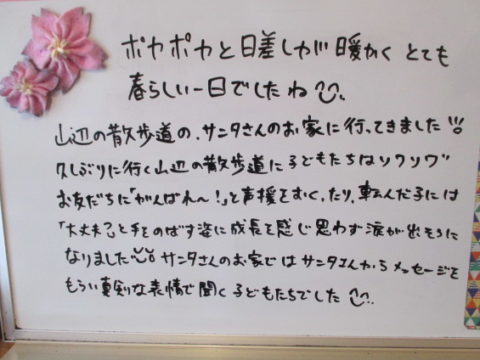 ポカポカと日差しが暖かく とても
春らしい一日でしたね
山辺の散歩道の、サンタさんのお家に行ってきました
久しぶりに行く山辺の散歩道に子どもたちはソワソワ
お友だちに「がんばれ〜!」と声援をおくったり、転んだ子には
「大丈夫?」と手をのばす姿に成長を感じ思わず涙が出そうに
なりました サンタさんのお家ではサンタさんからメッセージを
もらい真剣な表情で聞く子どもたちでした